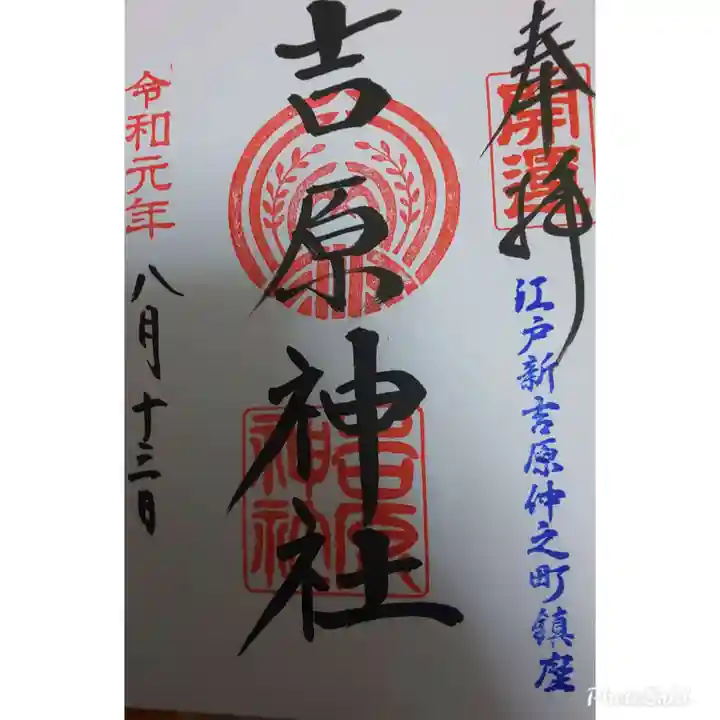 奉拝
開運
江戸新吉原仲之町鎮座
吉原神社
吉原
神社
令和元年
八月十三日